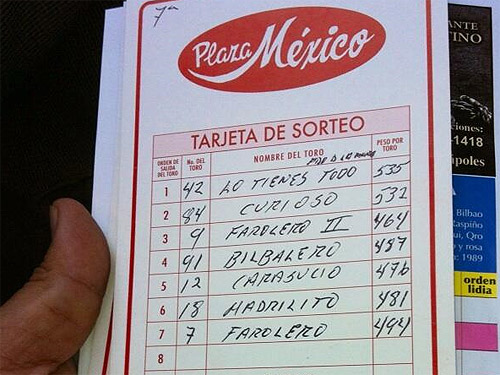 7ª
Plaza México
TARJETA DE SORTEO
ORDEN DE SALIDA DEL TORO No. DEL TORO NOMBRE DEL TORO PESO POR TORO
1 42 LO TIENES TODO 535
2 84 CURIOSO 532
3 9 FAROLERO II 464
4 91 BILBALERO 487
5 12 CARASUCIO 476
6 18 MADRILITO 481
7 7 FAROLERO 494
8
ANTE
TINO
ciones:
-1418
apoles
Bilbao
Raspiño
ui, Qro
o y rosa
: 1989
orden
lidia